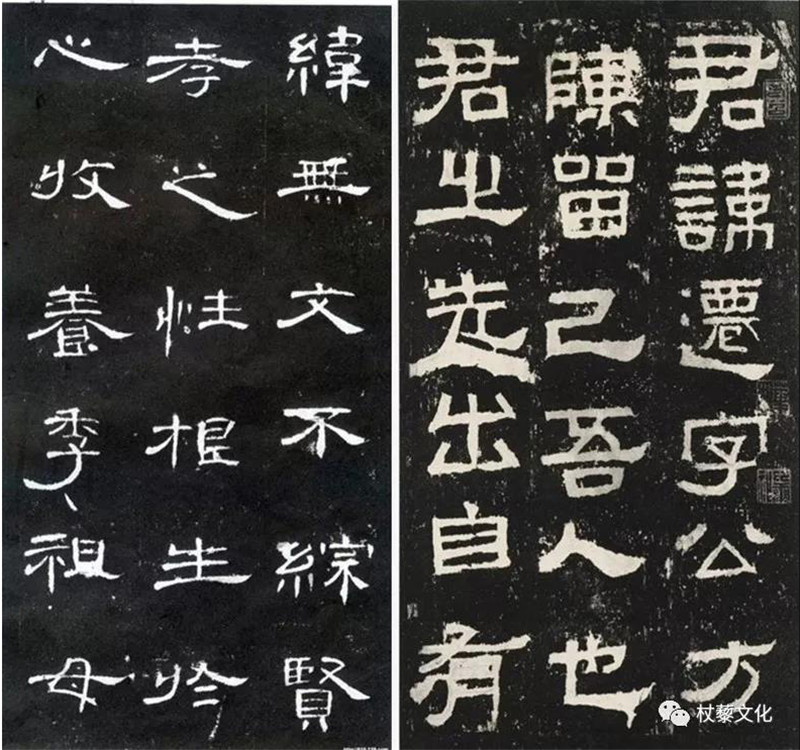 緯無文不綜賢
孝之性根生於
心收養季祖母
君諱遷字公方
陳留己吾人也
君之先出自有
杖藜文化